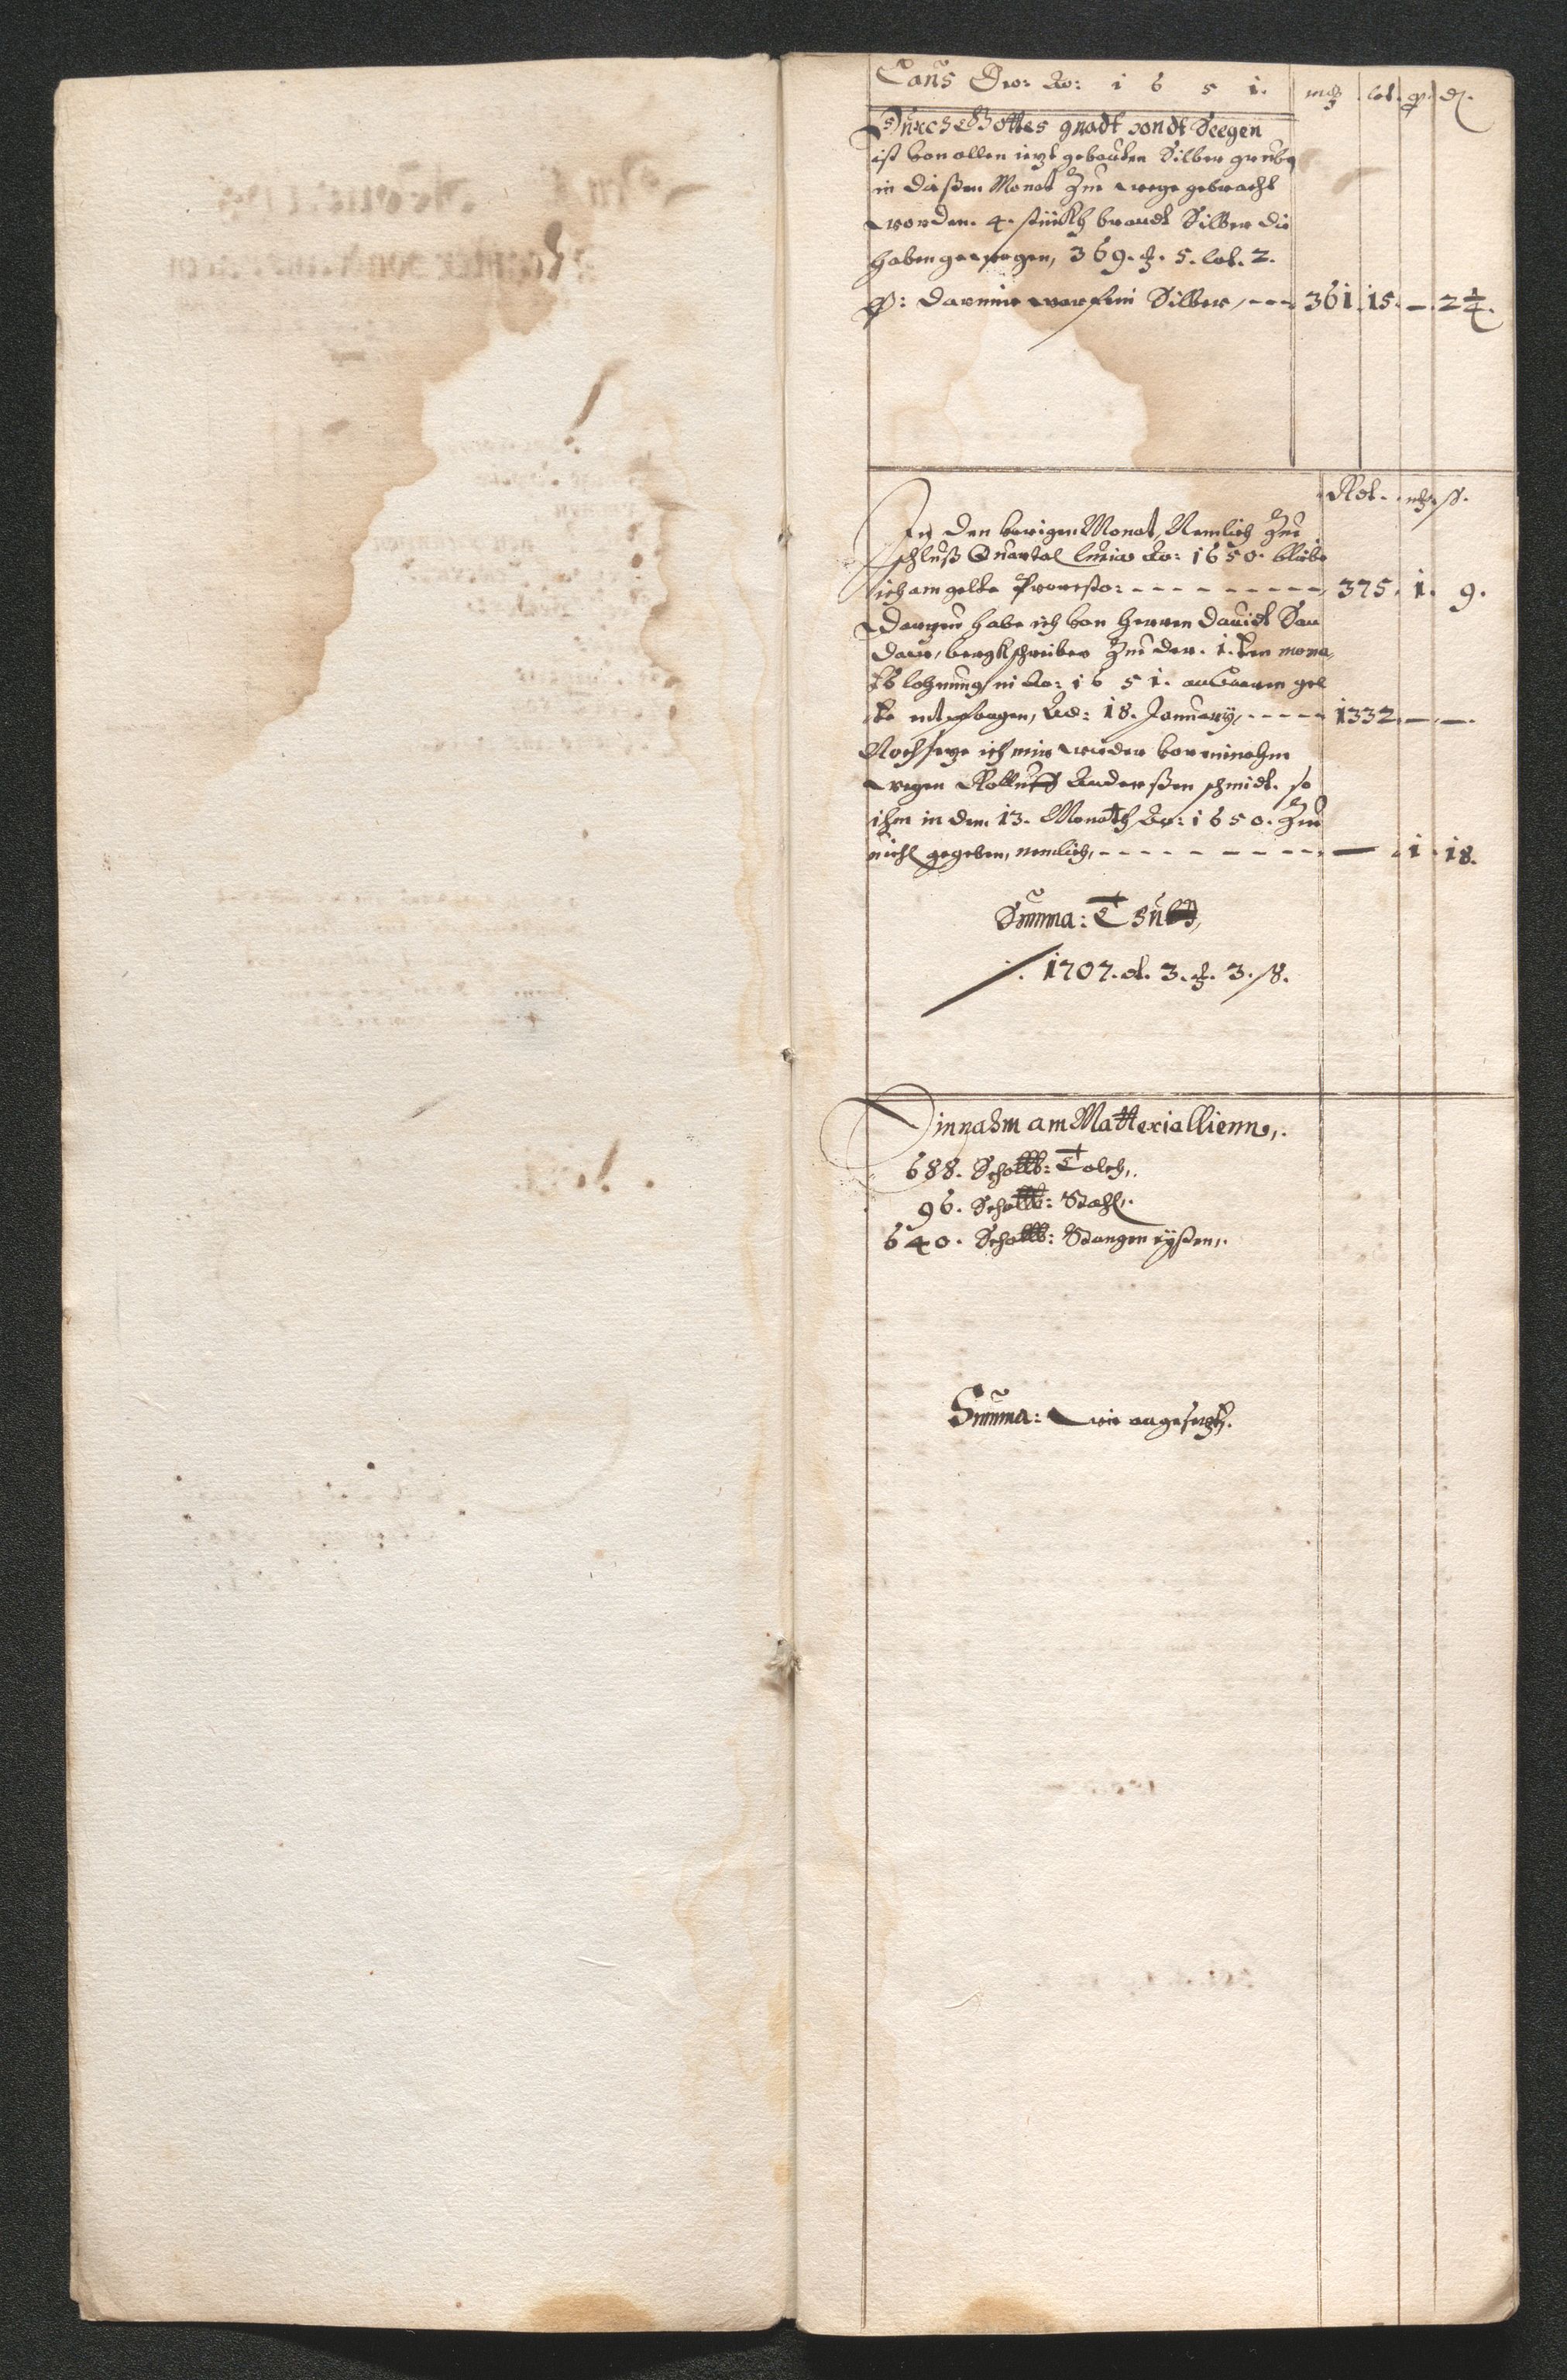 Laus Deo: Ao: 1 6 5 1. mk lot. q. d.
Durch Gottes gnadt vndt Seegen
ist von allen ietzt gebauten Silber grubn
in dießen Monat Zue wege gebracht
worden. 4. stückh brandt Silber die
haben gewogen, 369. mk. 5. lot. 2.
q: darinne war fein Silber, --- 361. 15. —. 2¼.
Rdt. mk. ß.
In den vorigen Monat, Nemlich Zue
schluß Quartal Luciæ Ao: 1650. bliebe
ich am gelte --------- 375. 1. 9.
Darzue habe ich von Herren Dauidt
bergkschreiber Zue der. 1. ten mona
ts lohnung in Ao: 1651. an baaren gel
te entpfangen, Ad: 18. January, ----- 1332. —. —.
Noch setze ich mir wieder vor einnahm
wegen Anderßen schmidt. so
ihm in dem 13. Monath Ao: 1650. Zue
gegeben, nemlich, -------- — . 1. 18.
Summa:
1707. d. 3. mk. 3. ß.
Einnahm am Matteriallienn,.
688. Schallb: Tolch,.
96. Schallb: Stahl,.
640. Schallb: Stangen eyßen,.
Summa: Wie angesetzt.